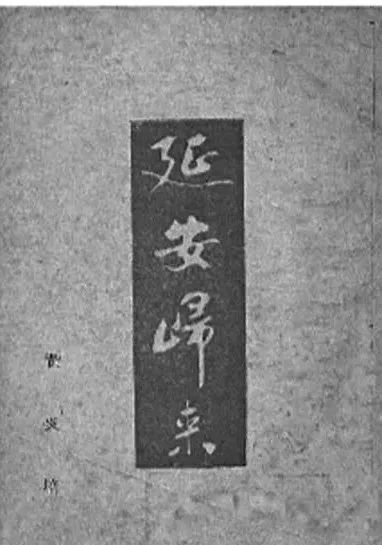 延安歸来
黄炎培